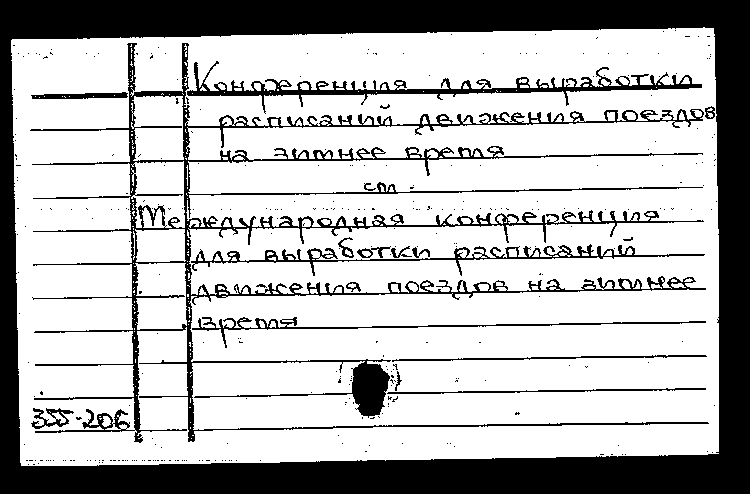 Конференция для выработки
расписаний движения поездов
на зимнее время
см.
Международная конференция
для выработки расписаний
движения поездов на зимнее
время
355-206